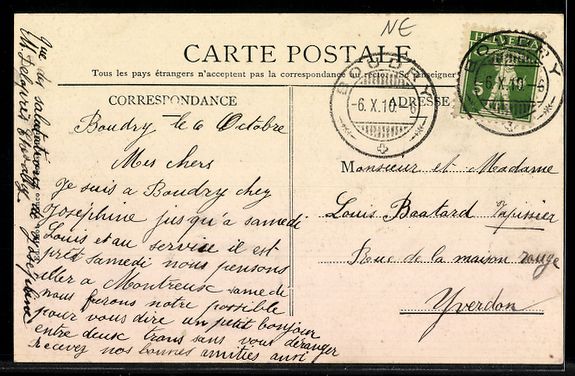 NE
CARTE POSTALE
Tous les pays étrangers n'acceptent pas la correspondance au recto. Se renseigner
CORRESPONDANCE
ADRESSE
BOUDRY
-6.X.10.-6
HELVETIA
5
BOUDRY
-6.X.10.-6
Boudry le 6 Octobre
Mes chers
Je suis à Boudry chez
Joséphine jusqu'à samedi
Louis et au service il est
prêt samedi nous pensons
aller a Montreux samedi
nous ferons notre possible
pour vous dire un petit bonjour
entre deux trans sans vous déranger
recevez nos bonnes amitiés ainsi
que de salutations de Joséphine
Monsieur et Madame
Louis Baatard Tapissier
Rue de la maison rouge
Yverdon